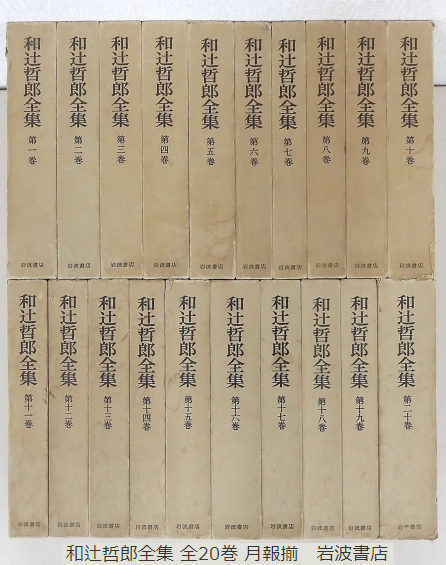 和辻哲郎全集 第一巻 岩波書店
和辻哲郎全集 第二巻 岩波書店
和辻哲郎全集 第三巻 岩波書店
和辻哲郎全集 第四巻 岩波書店
和辻哲郎全集 第五巻 岩波書店
和辻哲郎全集 第六巻 岩波書店
和辻哲郎全集 第七巻 岩波書店
和辻哲郎全集 第八巻 岩波書店
和辻哲郎全集 第九巻 岩波書店
和辻哲郎全集 第十巻 岩波書店
和辻哲郎全集 第十一巻 岩波書店
和辻哲郎全集 第十二巻 岩波書店
和辻哲郎全集 第十三巻 岩波書店
和辻哲郎全集 第十四巻 岩波書店
和辻哲郎全集 第十五巻 岩波書店
和辻哲郎全集 第十六巻 岩波書店
和辻哲郎全集 第十七巻 岩波書店
和辻哲郎全集 第十八巻 岩波書店
和辻哲郎全集 第十九巻 岩波書店
和辻哲郎全集 第二十巻 岩波書店
和辻哲郎全集 全20巻 月報揃　岩波書店